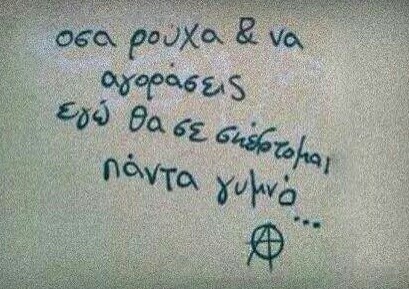 οσα ρούχα & να
αγοράσεις
εγώ θα σε σκέφτομαι
πάντα γυμνό...
Ⓐ